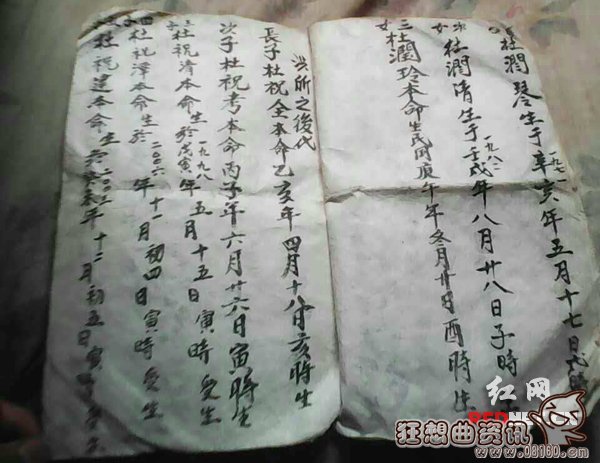 杜潤琴生于一九七辛亥年五月十七日戌
次女杜潤清生于一九八二壬戌年八月廿八日子時
三女杜潤玲本命生民国庚午年冬月廿日酉時生
之後代
長子杜祝全本命乙亥年四月十八日亥時生
次子杜祝考本命丙子年六月廿六日寅時生
三杜祝清本命生於一九九八戊寅年五月十五日寅時受生
四杜祝澤本命生於二〇〇六年十一月初四日寅時受生
杜祝建本命生二〇〇三癸未年十二月初五日寅時受生
红网
狂想曲资讯
www.08160.com